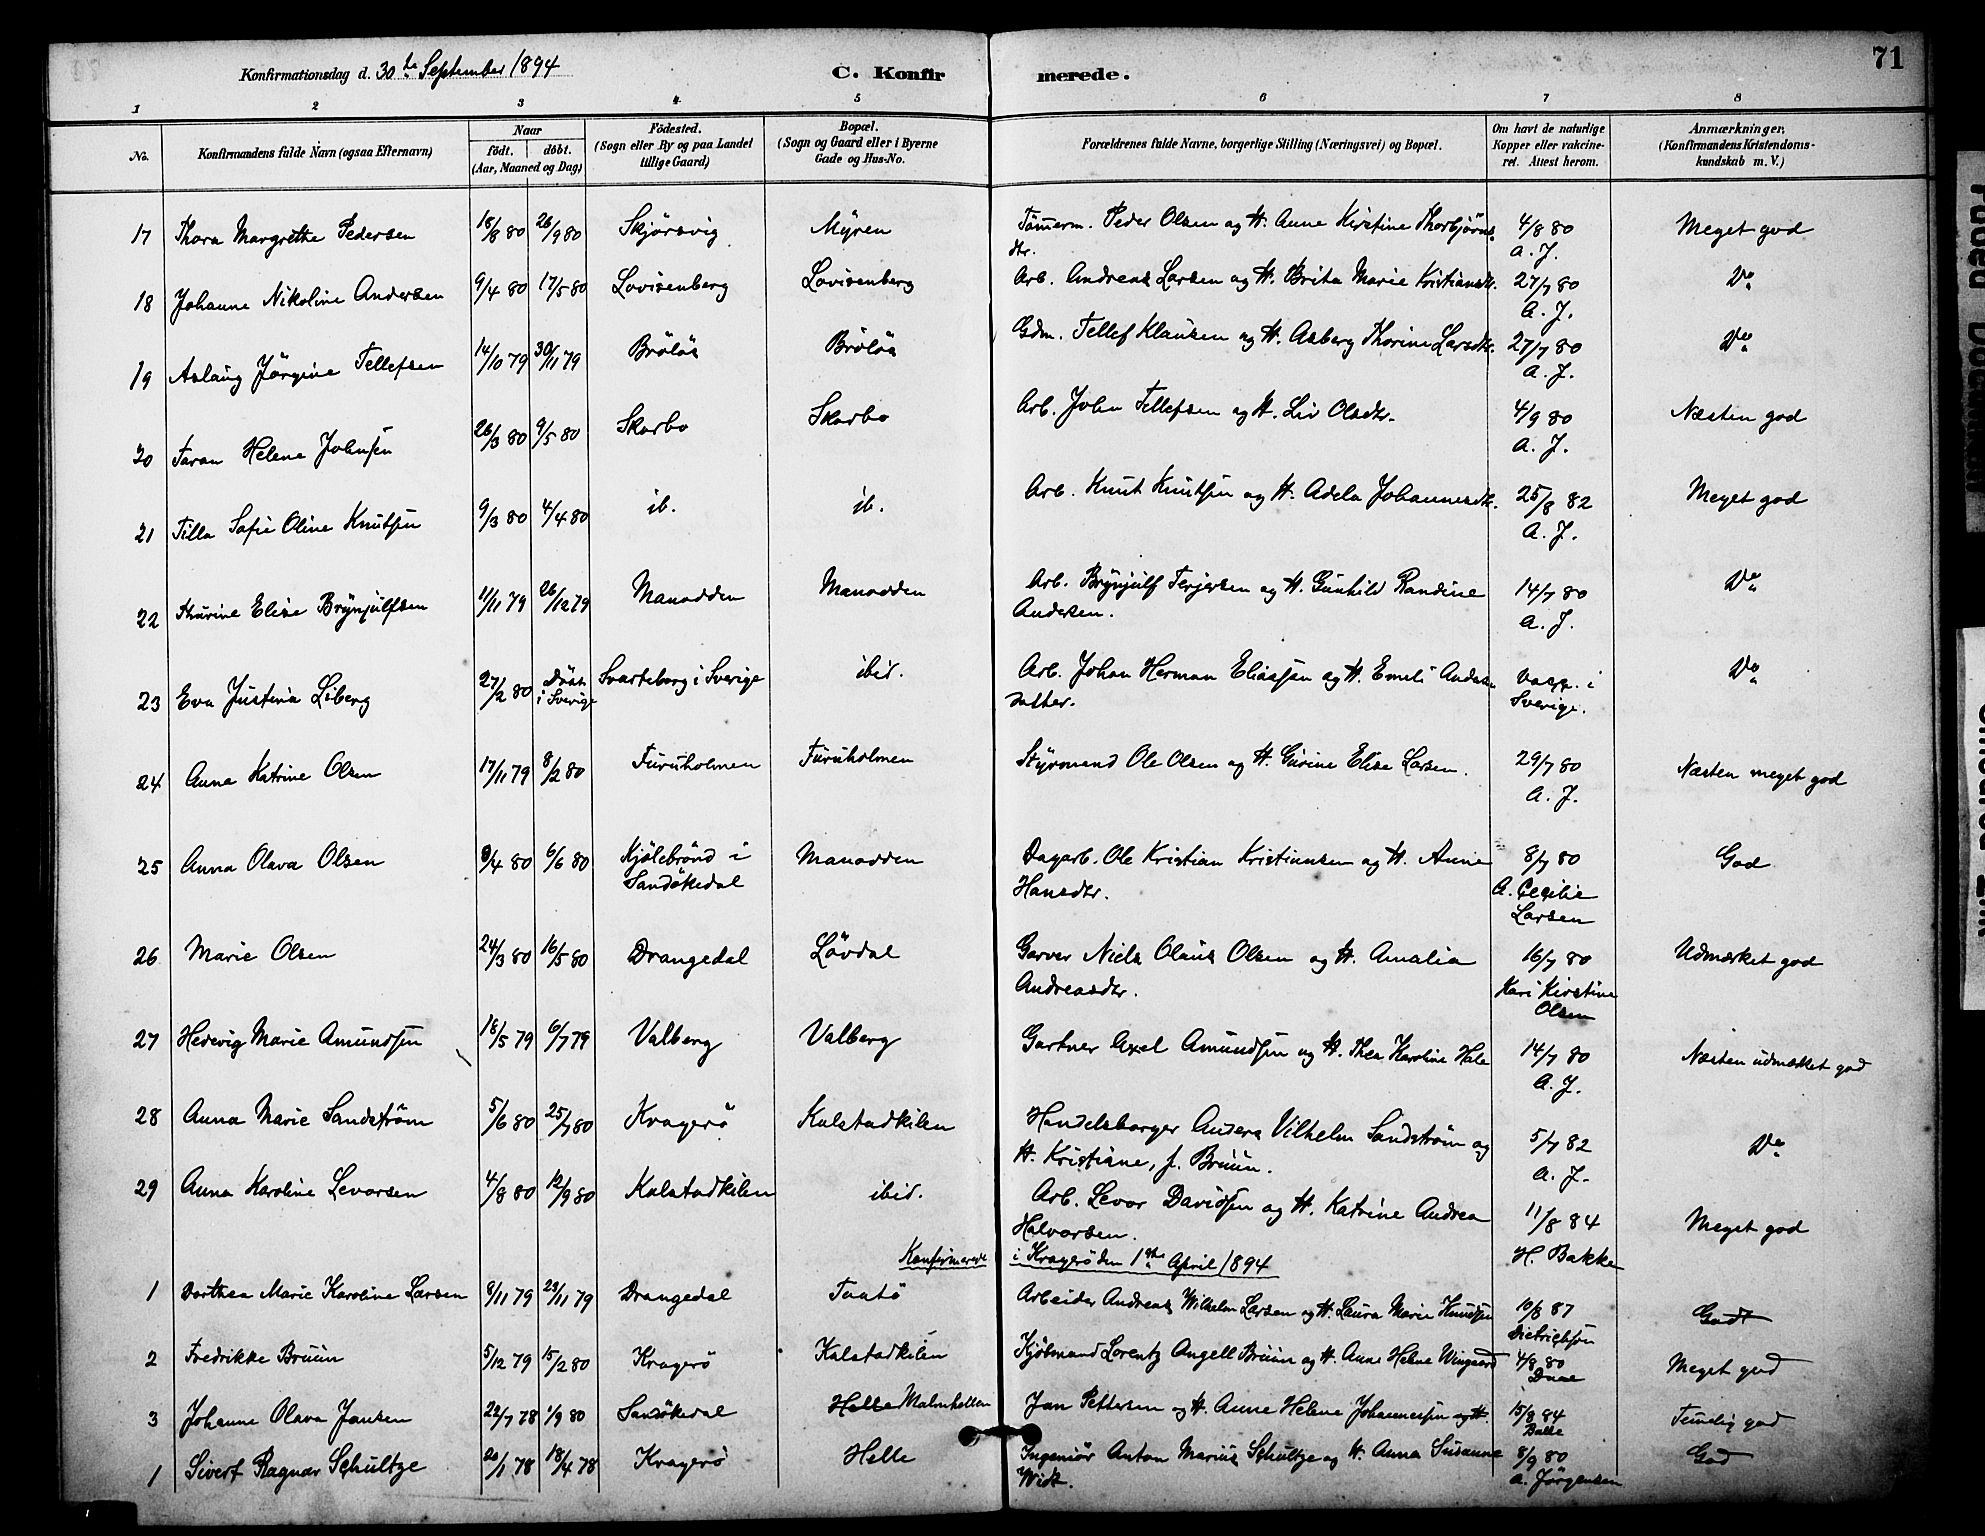 Konfirmationsdag d. 30te September 1894 C. Konfir merede. 71
1 2 3 4 5 6 7 8
No. Konfirmandens fulde Navn (ogsaa Efternavn) Naar födt. döbt. (Aar, Maaned og Dag) Födested. (Sogn eller By og paa Landet tillige Gaard) Bopæl. (Sogn og Gaard eller i Byerne Gade og Hus-No. Forældrenes fulde Navne, borgerlige Stilling (Næringsvei) og Bopæl. Om havt de naturlige Kopper eller vakcineret. Attest herom. Anmærkninger, (Konfirmandens Kristendomskundskab m. V.)
17 Thora Margrethe Pedersen 18/8 80 26/9 80 Skjörsvig Myren Tömerm. Peder Olsen og H. Anne Kirstine Thorbjörns- 4/8 80 Meget god
dtr. A. J.
18 Johanne Nikoline Andersen 9/4 80 17/5 80 Lovisenberg Lovisenberg Arb. Andreas Larsen og H. Brita Marie Kristiansdtr. 27/7 80 Do
A. J.
19 Aslaug Jörgine Tellefsen 14/10 79 30/11 79 Bröløs Bröløs Gdm. Tellef Klausen og H. Asberg Thorine Larsdtr. 27/7 80 Do
A. J.
20 Taran Helene Johnsen 26/3 80 9/5 80 Skarbo Skarbo Arb. John Tellefsen og H. Liv Olsdtr. 4/9 80 Næsten god
A. J.
21 Tilla Sofie Oline Knutsen 9/3 80 4/4 80 ib. ib. Arb. Knut Knutsen og H. Adela Johannesdtr. 25/8 82 Meget god
A. J.
22 Thurine Elise Brynjulfsen 11/11 79 26/12 79 Manodden Manodden Arb. Brynjulf Terjesen og H. Gunhild Randine 14/7 80 Do
Andersen. A. J.
23 Eva Justina Liberg 27/2 80 Döbt i Sverige Svarteborg i Sverige ibid. Arb. Johan Herman Eliassen og H. Emeli Anders- vacc. i Do
datter. Sverige.
24 Anna Katrine Olsen 17/11 79 8/2 80 Furuholmen Furuholmen Styrmand Ole Olsen og H. Gurine Elise Larsen. 29/7 80 Næsten meget god
A. J.
25 Anna Olava Olsen 9/4 80 6/6 80 Kjölebrönd i Manodden Dagarb. Ole Kristian Kristiansen og H. Anne 8/7 80 God
Sandökedal Hansdtr. A. Cecilie
Larsen
26 Marie Olsen 24/3 80 16/5 80 Drangedal Lövdal Garver Niels Olaus Olsen og H. Amalia 16/7 80 Udmærket god
Andreasdtr. Kari Kirstine
Olsen
27 Hedevig Marie Amundsen 18/5 79 6/7 79 Valberg Valberg Gartner Axel Amundsen og H. Thea Karoline Hals 14/7 80 Næsten udmærket god
A. J.
28 Anna Marie Sandström 5/6 80 25/7 80 Kragerö Kalstadkilen Handelsborger Anders Vilhelm Sandström og 5/7 82 Do
H. Kristiane, f. Bruun. A. J.
29 Anna Karoline Levorsen 4/8 80 12/9 80 Kalstadkilen ibid. Arb. Levor Davidsen og H. Katrine Andrea 11/8 84 Meget god
Halvorsen. H. Bakke
Konfirmerede i Kragerö den 1ste April 1894
1 Dorthea Marie Karoline Larsen 8/11 79 23/11 79 Drangedal Taatö Arbeider Andreas Wilhelm Larsen og H. Laura Marie Knudsen 10/8 87 Godt
Dietrichson
2 Fredrikke Bruun 5/12 79 15/2 80 Kragerö Kalstadkilen Kjöbmand Lorentz Angell Bruun og H. Anne Helene Wingaard 4/8 80 Meget god
3 Johanne Olava Jansen 22/7 78 1/9 80 Sandökedal Helle Malmhellen Jan Pettersen og H. Anne Helene Johannesen og H. 15/8 84 Temelig god
1 Sivert Ragnar Schultze 20/1 78 18/4 78 Kragerö Helle Ingeniör Anton Marius Schultze og H. Anna Susanne 8/9 80 God
Widt. A. Jörgensen